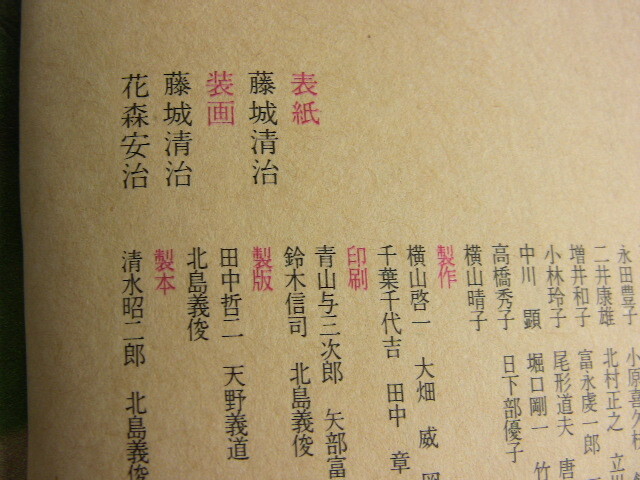 表紙
藤城清治
装画
藤城清治
花森安治
永田豊子
二井康雄 北村正之 立
増井和子 富永虔一郎
小林玲子 尾形道夫 唐
中川 顕 堀口剛一 竹
高橋秀子 日下部優子
横山晴子
製作
横山啓一 大畑 威
千葉千代吉 田中 章
印刷
青山与三次郎 矢部富
鈴木信司 北島義俊
製版
田中哲二 天野義道
北島義俊
製本
清水昭二郎 北島義俊